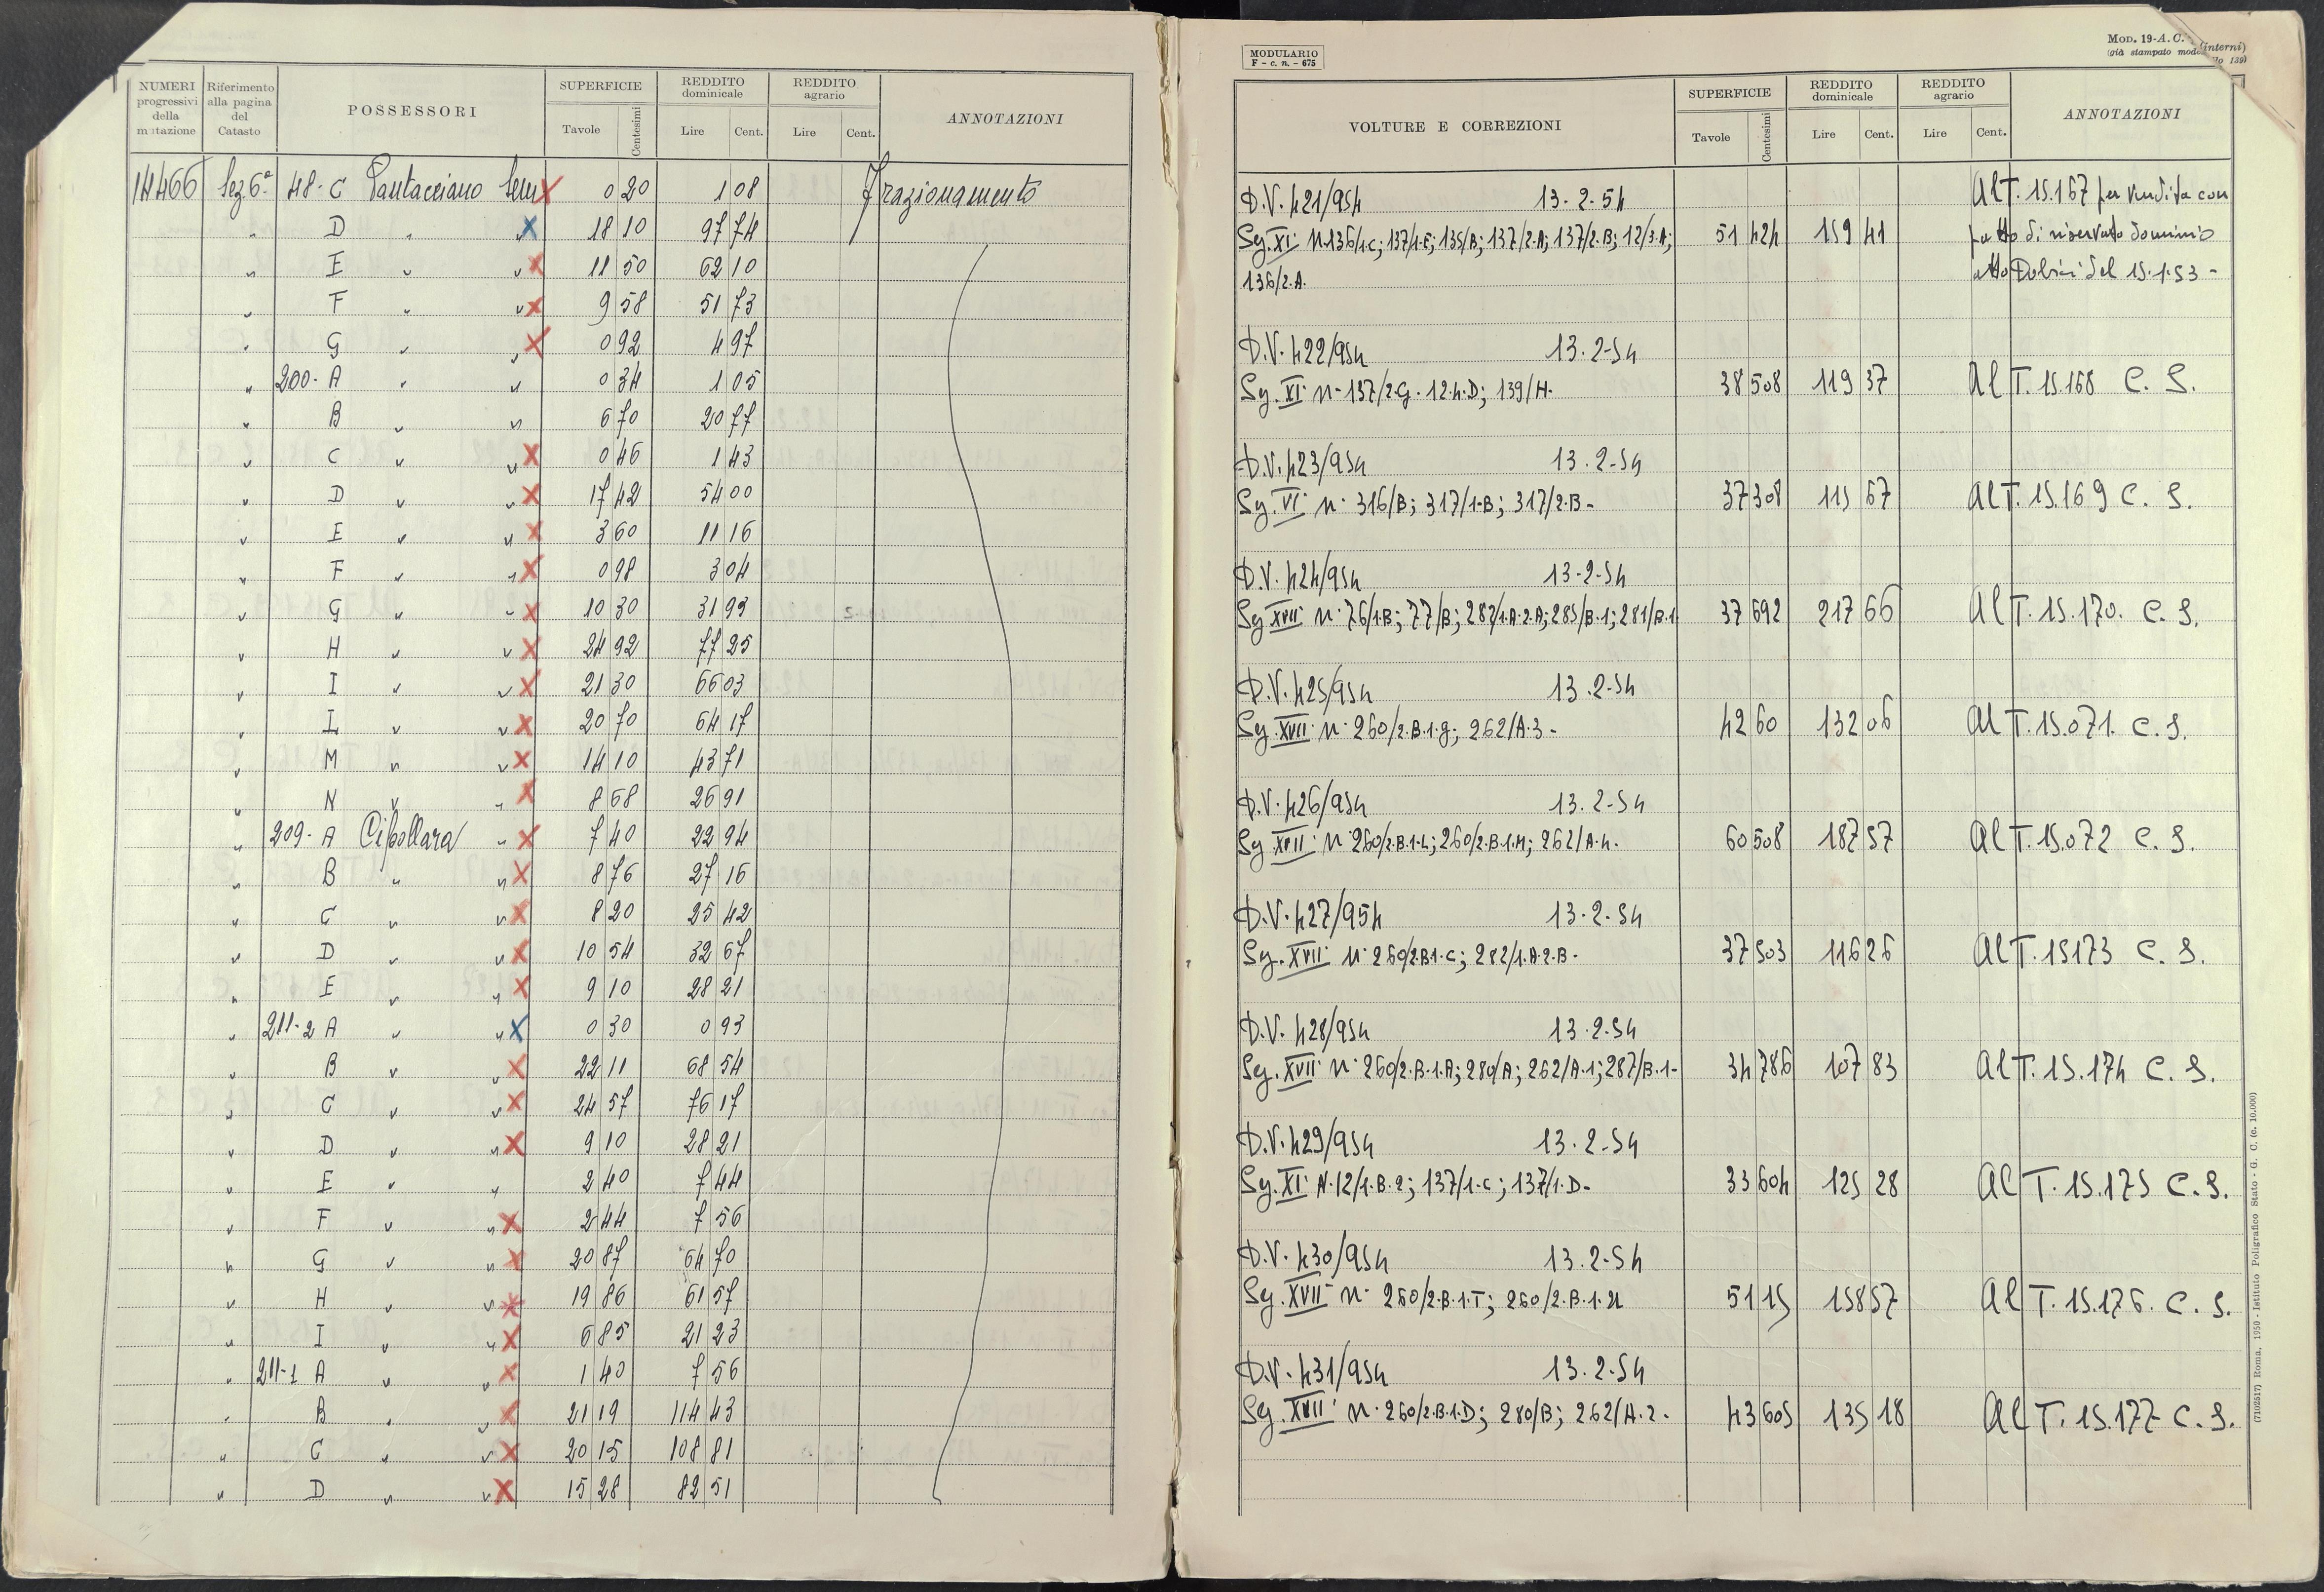 NUMERI progressivi della mutazione
Riferimento alla pagina del Catasto
POSSESSORI
SUPERFICIE
Tavole Centesimi
REDDITO dominicale
Lire Cent.
REDDITO agrario
Lire Cent.
ANNOTAZIONI
14466 Sez 6ª 48-C Pantacciano Sem X 0 20 1 08 Frazionamento
" D " " X 18 10 97 74
" E " " X 11 50 62 10
" F " " X 9 58 51 73
" G " " X 0 92 4 97
" 200- A " " 0 34 1 05
" B " " 6 70 20 77
" C " " X 0 46 1 43
" D " " X 17 42 54 00
" E " " X 3 60 11 16
" F " " X 0 98 3 04
" G " " X 10 30 31 93
" H " " X 24 92 77 25
" I " " X 21 30 66 03
" L " " X 20 70 64 17
" M " " X 14 10 43 71
" N " " X 8 68 26 91
" 209- A Cipollara " X 7 40 22 94
" B " " X 8 76 27 16
" C " " X 8 20 25 42
" D " " X 10 54 32 67
" E " " X 9 10 28 21
" 211-2 A " " X 0 30 0 93
" B " " X 22 11 68 54
" C " " X 24 57 76 17
" D " " X 9 10 28 21
" E " " 2 40 7 44
" F " " X 2 44 7 56
" G " " X 20 87 64 70
" H " " X 19 86 61 57
" I " " X 6 85 21 23
" 211-1 A " " X 1 40 7 56
" B " " X 21 19 114 43
" C " " X 20 15 108 81
" D " " X 15 28 82 51
MODULARIO
F - c. n. - 675
MOD. 19-A. C.
(interni)
(già stampato
139)
VOLTURE E CORREZIONI
SUPERFICIE
Tavole Centesimi
REDDITO dominicale
Lire Cent.
REDDITO agrario
Lire Cent.
ANNOTAZIONI
D.V. 421/954 13-2-54 Al T. 15.167 per vendita con
Sez. XI n. 136/1.C; 137/1.E; 135/B; 137/2.A; 137/2.B; 12/3.A; 51 424 159 41 patto di riservato dominio
136/2.A. atto del 15.1.53-
D.V. 422/954 13.2-54
Sez. XI n. 137/2.G. 12.4.D; 139/H. 38 508 119 37 Al T. 15.168 C. S.
D.V. 423/954 13.2-54
Sez. VI n. 316/B; 317/1.B; 317/2.B- 37 308 115 67 Al T. 15.169 C. S.
D.V. 424/954 13-2-54
Sez XVII n. 76/1.B; 77/B; 287/1.A.2.A; 285/B.1; 281/B.1 37 692 217 66 Al T. 15.170. C. S.
D.V. 425/954 13.2-54
Sez. XVII n. 260/2.B.1.g; 262/A.3- 42 60 132 06 Al T. 15.071. C. S.
D.V. 426/954 13.2-54
Sez XVII n. 260/2.B.1.L; 260/2.B.1.M; 262/A.4. 60 508 187 57 Al T. 15.072 C. S.
D.V. 427/954 13.2-54
Sez. XVII n. 260/2.B.1.C; 282/1.A.2.B- 37 503 116 26 Al T. 15173 C. S.
D.V. 428/954 13.2-54
Sez. XVII n. 260/2.B.1.A; 280/A; 262/A.1; 287/B.1- 34 786 107 83 Al T. 15.174 C. S.
D.V. 429/954 13.2-54
Sez. XI N. 12/1.B.2; 137/1.C; 137/1.D- 33 604 125 28 Al T. 15.175 C. S.
D.V. 430/954 13.2-54
Sez. XVII n. 260/2.B.1.T; 260/2.B.1.U 51 15 158 57 Al T. 15.176. C. S.
D.V. 431/954 13.2-54
Sez. XVII n. 260/2.B.1.D; 280/B; 262/A.2. 43 605 135 18 Al T. 15.177 C. S.
(7102517) Roma, 1950 - Istituto Poligrafico Stato - G. C. (c. 10.000)